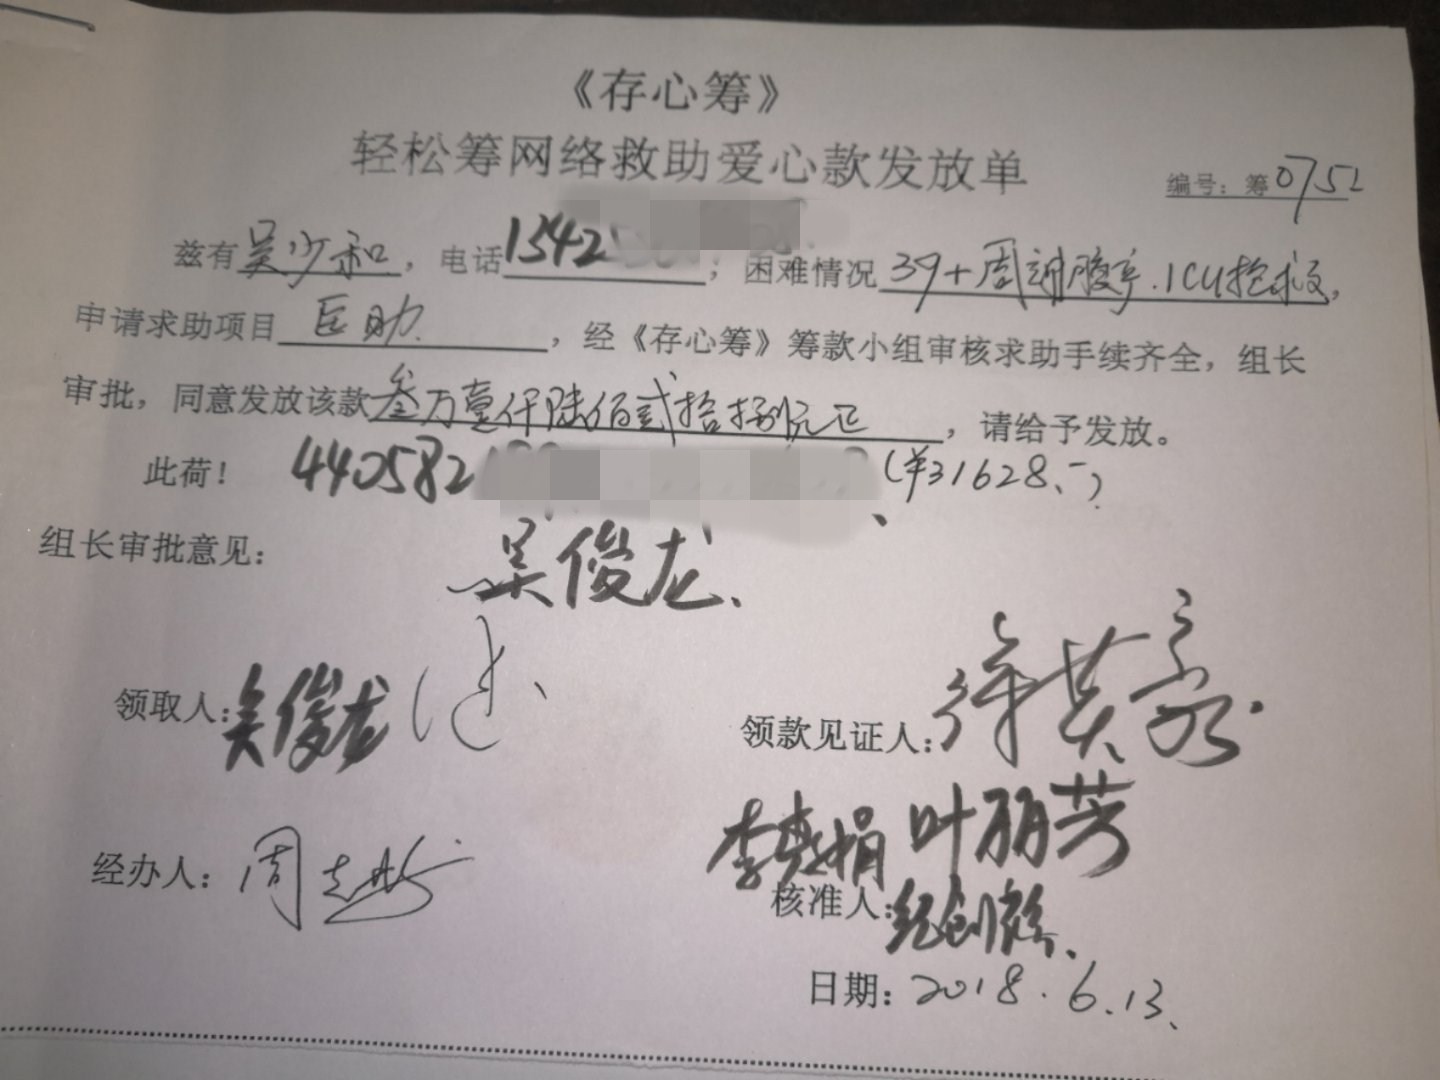 《存心筹》
轻松筹网络救助爱心款发放单
编号：筹0752
兹有吴少和，电话1342，困难情况39+周 ICU抢救，
申请求助项目医助，经《存心筹》筹款小组审核求助手续齐全，组长
审批，同意发放该款叁万壹仟陆佰贰拾捌元正，请给予发放。
此荷！ 440582 (¥31628.-)
组长审批意见： 吴俊龙
领取人：吴俊龙
领款见证人：
叶丽芳
经办人：周
核准人：
日期：2018.6.13